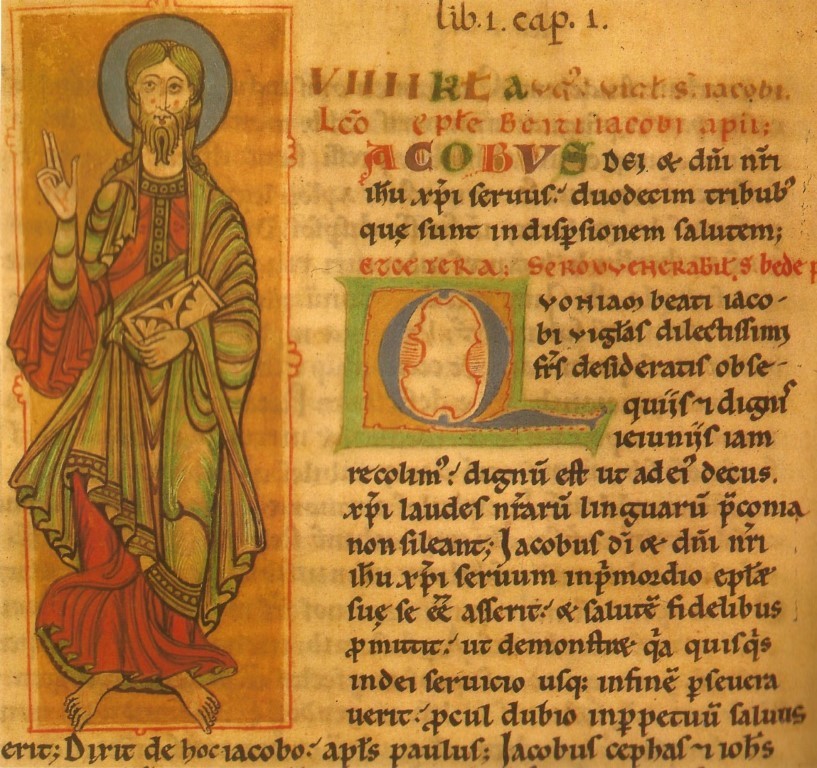 lib. 1. cap. 1.
VIIII kł Augꝰ. vigł. s. iacobi.
Lcō epłe Beati iacobi apłi;
IACOBVS DEI & dn̄i nr̄i
ihu xp̄i seruus.' duodecim tribubꝰ
quę sunt in disꝑsionem salutem;
ETCETERA; Sermo venerabiłs bede p
Q VONIAM beati iaco-
bi vigilias dilectissimi
fr̄s desideratis obse-
quijs ⁊ dignis
ieiunijs iam
recolimꝰ.' dignū est ut ad eiꝰ decus.
xp̄i laudes nr̄arū linguarū p̄conia
non sileant; Jacobus dī & dn̄i nr̄i
ihu xp̄i seruum in p̄mordio epłæ
suę se eē asserit.' & salutē fidelibus
ꝓmittit.' ut demonstret q̄a quisq̇s
in dei seruicio usq; in finē ꝑseuera
uerit.' ꝓcul dubio in ꝑpetuū saluus
erit; Dixit de hoc iacobo.' apłs paulus; Jacobus cephas ⁊ ioh̄s